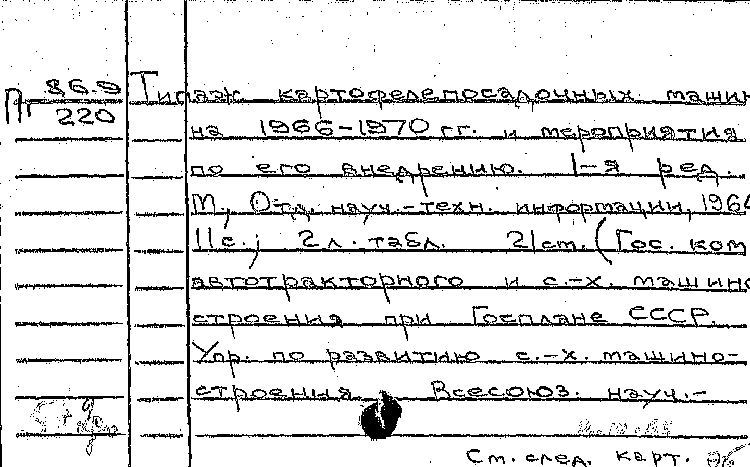 Пг 86.9
220
Типаж картофелепосадочных машин
на 1966-1970 гг. и мероприятия
по его внедрению. 1-я ред.
М., Отд. науч.-техн. информации, 1964
11 с.; 2 л. табл. 21 ст. (Гос. ком
автотракторного и с.-х. машино
строения при Госплане СССР.
Упр. по развитию с.-х. машино-
строения. Всесоюз. науч.-
См. след. карт.